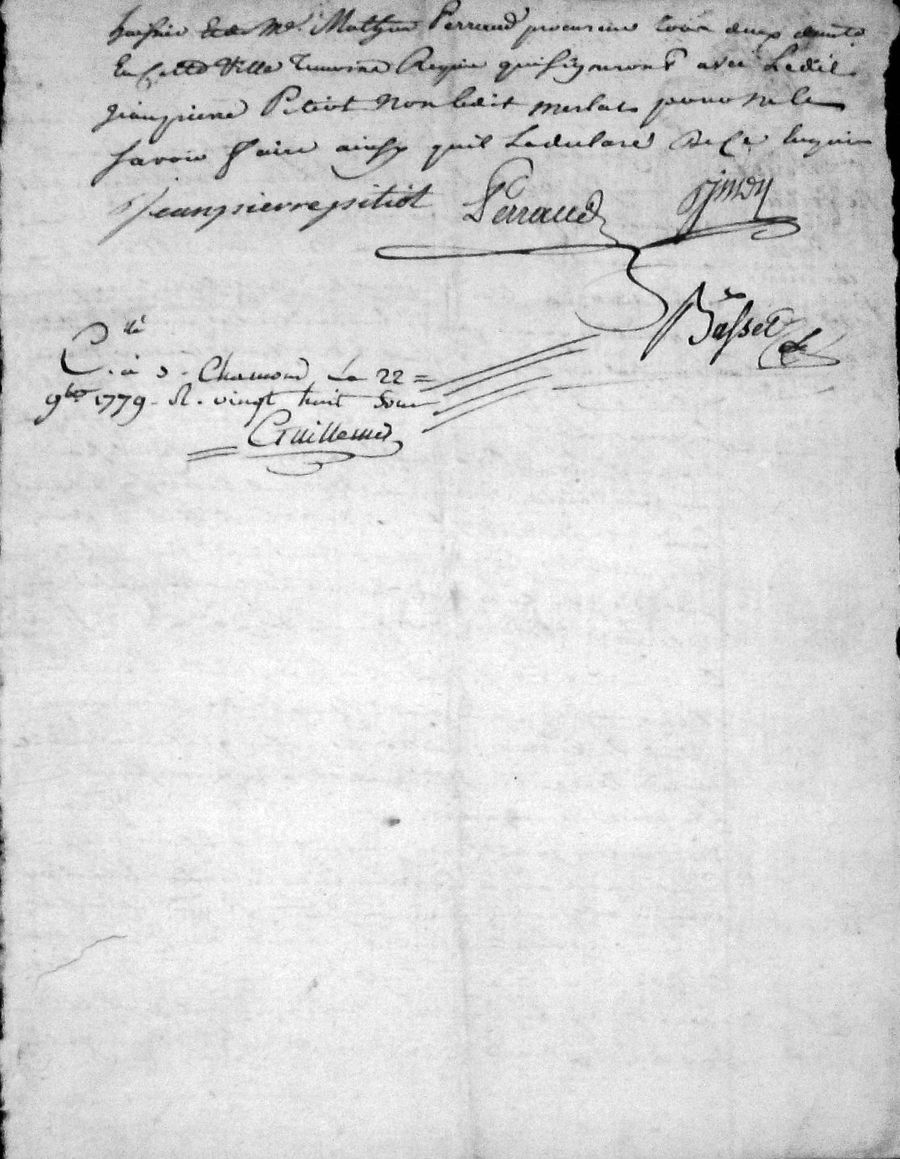 huissier et de Me. Mathieu Perraud procureur tous deux demts.
En Cette Ville Temoins Requis qui signeront avec Ledit
jean pierre Pitiot non ledit merlat pour ne le
savoir faire ainsy quil La declaré De Ce Enquis
Jean pierre pitiot Perraud
Basset
C.llé à S. Chamond Le 22
9bre 1779 R. vingt huit sous
Guillemin